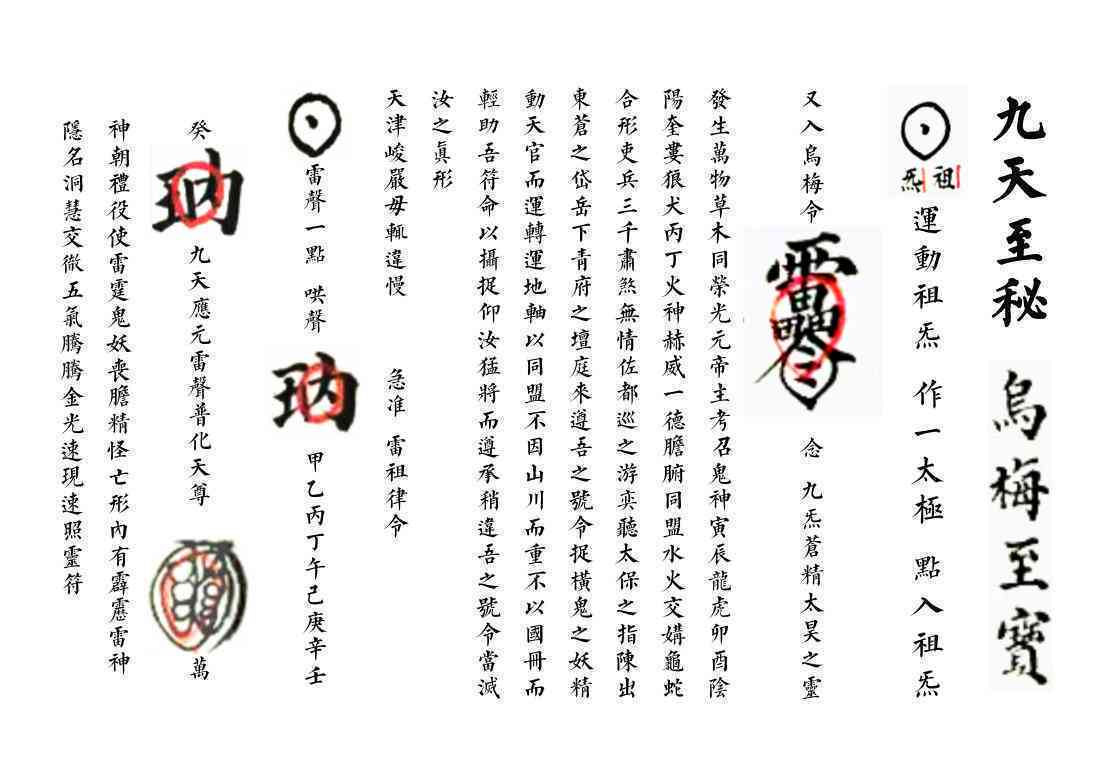 九天至秘 烏梅至寶
祖炁 運動祖炁 作一太極 點入祖炁
又入烏梅令 念 九炁蒼精太昊之靈
發生萬物草木同榮光元帝主考召鬼神寅辰龍虎卯酉陰
陽奎婁狼犬丙丁火神赫威一德膽腑同盟水火交媾龜蛇
合形吏兵三千肅煞無情佐都巡之游奕聽太保之指陳出
東蒼之岱岳下青府之壇庭來遵吾之號令捉橫鬼之妖精
動天官而運轉運地軸以同盟不因山川而重不以國冊而
輕助吾符命以攝捉仰汝猛將而遵承稍違吾之號令當滅
汝之眞形
天津峻嚴毋輒違慢 急准 雷祖律令
雷聲一點 哄聲 甲乙丙丁午己庚辛壬
癸 九天應元雷聲普化天尊 萬
神朝禮役使雷霆鬼妖喪膽精怪亡形內有霹靂雷神
隱名洞慧交徹五氣騰騰金光速現速照靈符